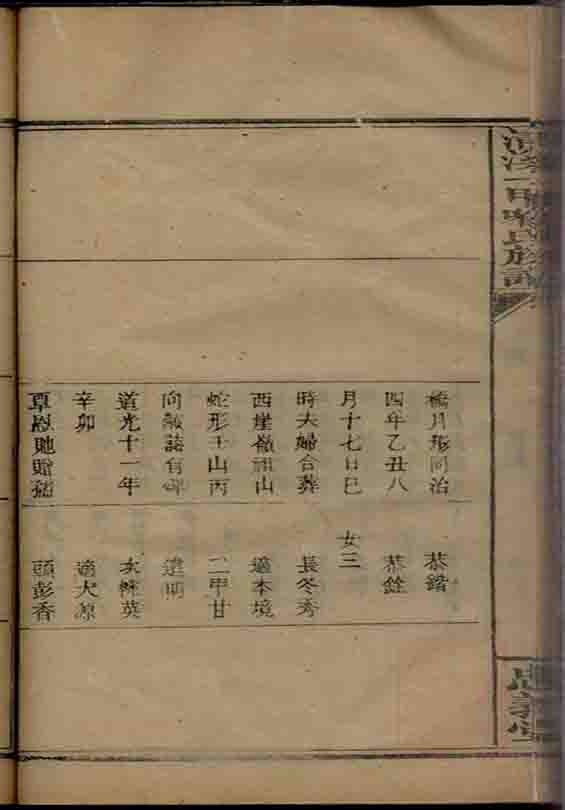 四年乙丑八
月十七日巳
時夫婦合葬
西崖嶺祖山
蛇形壬山丙
向誥有碑
道光十一年
辛卯
覃恩馳贈
恭鍇
恭銓
女三
長冬秀
適本境
二甲甘
達明
次棣英
適大源
頭彭香
忠義堂